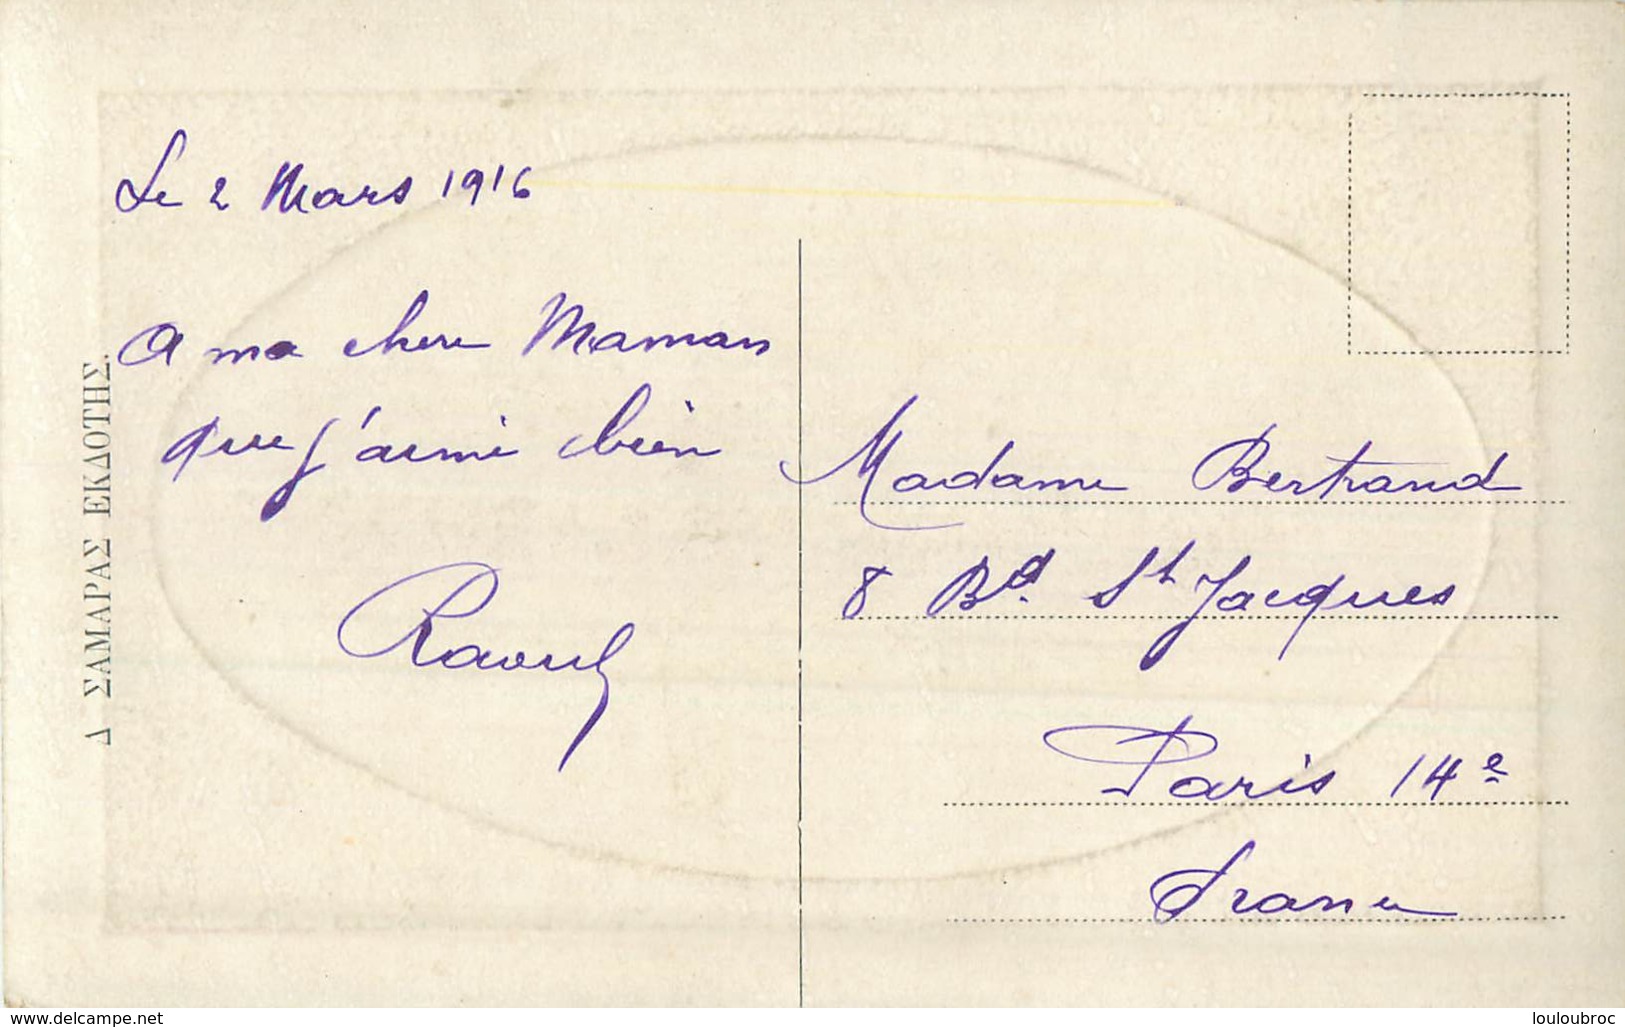 Le 2 Mars 1916
A ma chere Maman
que j'aime bien
Raoul
Δ ΣΑΜΑΡΑΣ ΕΚΔΟΤΗΣ.
Madame Bertrand
8 Bd. St Jacques
Paris 14e
France
www.delcampe.net
louloubroc